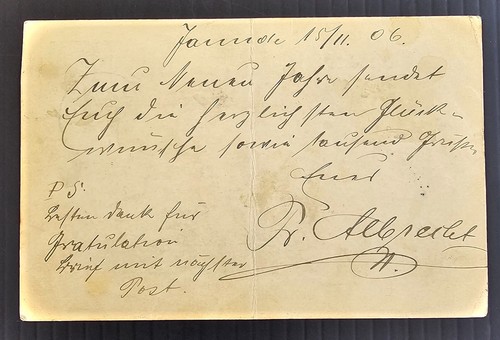 Jaunde 15/11. 06.
Zum Neuen Jahre sendet
Euch die herzlichsten Glück-
wünsche sowie tausend Grüße
Euer
Albrecht
P S.
Besten Dank für
Gratulation
Brief mit nächster
Post.